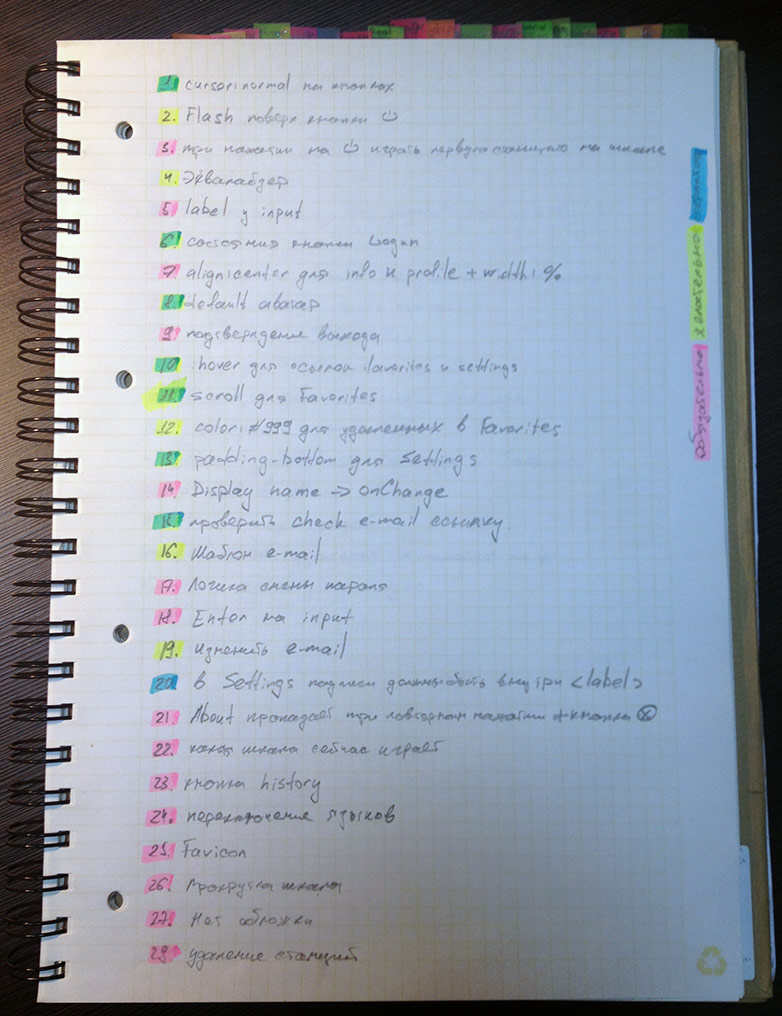 1. cursor:normal на кнопках
2. Flash поверх кнопки ⏻
3. при нажатии на ⏻ играть первую станцию на шкале
4. Эквалайзер
5. label у input
6. состояния кнопки Login
7. align:center для info и profile + width: %
8. default аватар
9. подтверждение выхода
10. :hover для ссылок favorites и settings
11. scroll для Favorites
12. color:#999 для удаленных в Favorites
13. padding-bottom для Settings
14. Display name -> onChange
15. проверить check e-mail ссылку.
16. Шаблон e-mail
17. Логика смены пароля
18. Enter на input
19. Изменить e-mail
20. в Settings подписи должны быть внутри <label>
21. About пропадает при повторном нажатии + кнопка ⓧ
22. какая шкала сейчас играет
23. кнопка history
24. переключение языков
25. Favicon
26. Прокрутка шкалы
27. Нет обложки
28. удаление станций
Обязательно желательно